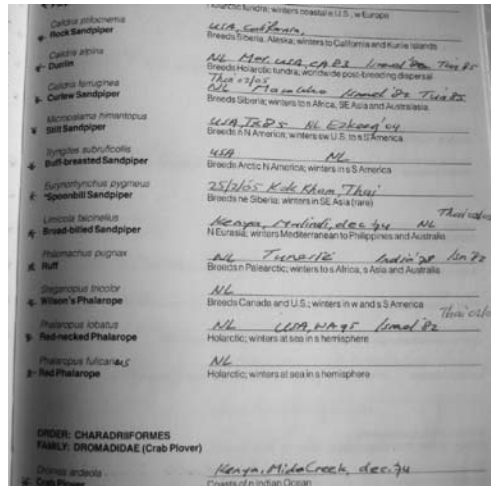 Holarctic tundra; winters coastal e U.S., w Europe
Calidris ptilocnemis
Rock Sandpiper
USA, California,
Breeds Siberia, Alaska; winters to California and Kurile Islands
Calidris alpina
Dunlin
NL Mor. USA, CA 83 Israel Tun 85
Breeds Holarctic tundra, worldwide post-breeding dispersal
Calidris ferruginea
Curlew Sandpiper
Thai 02/05
NL Israel '82 Tun 85
Breeds Siberia; winters to s Africa, SE Asia and Australasia
Micropalama himantopus
Stilt Sandpiper
USA, NL '04
Breeds n N America; winters sw U.S. to s S America
Tryngites subruficollis
Buff-breasted Sandpiper
USA NL
Breeds Arctic N America; winters in s S America
Eurynorhynchus pygmeus
*Spoonbill Sandpiper
25/2/05 Kok Kham, Thai
Breeds ne Siberia; winters in SE Asia (rare)
Limicola falcinellus
Broad-billed Sandpiper
Kenya, Malindi, dec '74 NL
N Eurasia; winters Mediterranean to Philippines and Australia
Philomachus pugnax
Ruff
NL Tunesië India '78
Breeds n Palearctic; winters to s Africa, s Asia and Australia
Steganopus tricolor
Wilson's Phalarope
NL
Breeds Canada and U.S.; winters in w and s S America
Phalaropus lobatus
Red-necked Phalarope
NL USA, WA 95 Israel '82
Holarctic; winters at sea in s hemisphere
Phalaropus fulicarius
Red Phalarope
NL
Holarctic; winters at sea in s hemisphere
ORDER: CHARADRIIFORMES
FAMILY: DROMADIDAE (Crab Plover)
Dromas ardeola
Crab Plover
Kenya, Mida Creek, dec. '74
Coasts of n Indian Ocean